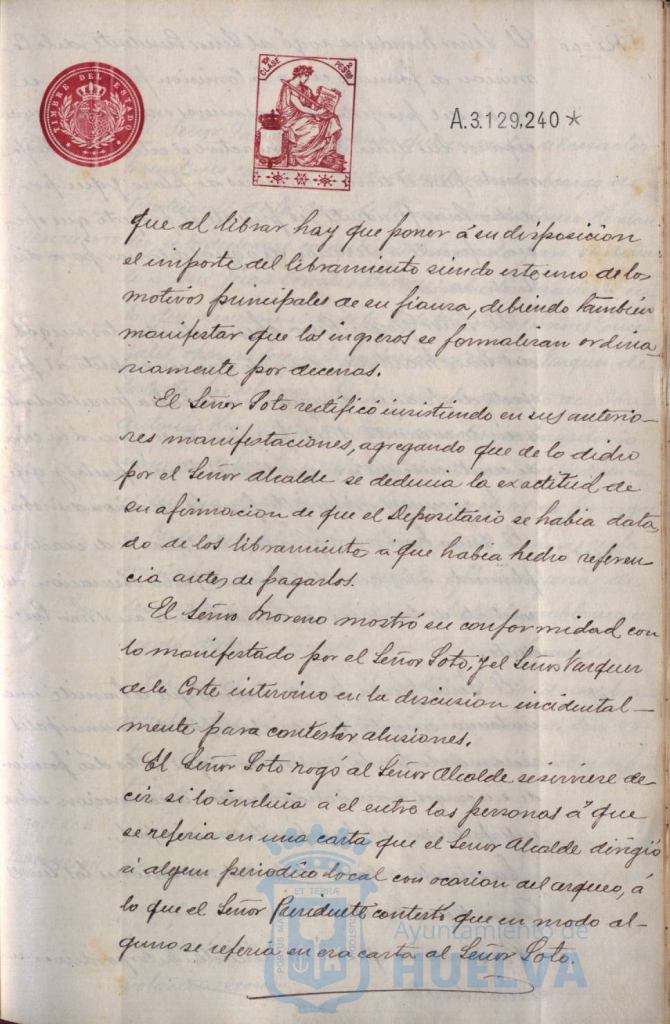 TIMBRE DEL ESTADO
CLASE
PESETAS
A.3.129,240*
que al librar hay que poner á su disposicion
el importe del libramiento siendo este uno de los
motivos principales de su fianza, debiendo tambien
manifestar que los ingresos se formalizan ordina-
riamente por decenas.
El Señor Soto rectificó insistiendo en sus anterio-
res manifestaciones, agregando que de lo dicho
por el Señor Alcalde se deducia la exactitud de
su afirmacion de que el Depositario se habia data
do de los libramiento á que habia hecho referen
cia antes de pagarlos.
El Señor Moreno mostró su conformidad con
lo manifestado por el Señor Soto, y el Señor Vazquez
de la Corte intervino en la discusion incidental-
mente para contestar alusiones.
El Señor Soto rogó al Señor Alcalde se sirviere de-
cir si lo incluia á el entre las personas á que
se referia en una carta que el Señor Alcalde dirigió
á algun periodico local con ocasion del arqueo, á
lo que el Señor Presidente contestó que en modo al-
guno se referia en esa carta al Señor Soto.
Ayuntamiento de
HUELVA